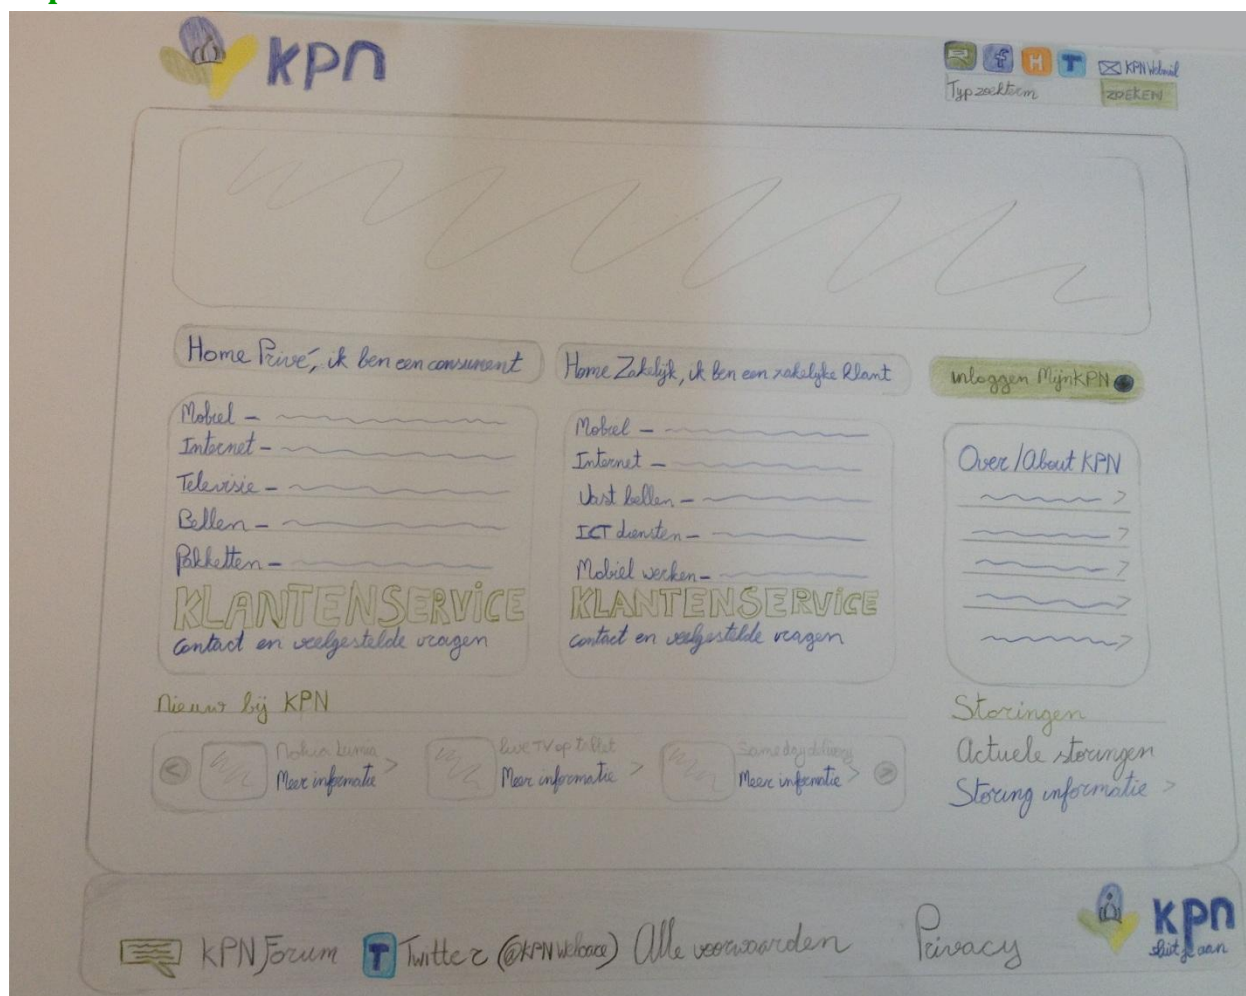 kpn
f H T KPN Webmail
Typ zoekterm ZOEKEN
Home Privé, ik ben een consument
Mobiel –
Internet –
Televisie –
Bellen –
Pakketten –
KLANTENSERVICE
contact en veelgestelde vragen
Home Zakelijk, ik ben een zakelijke klant
Mobiel –
Internet –
Vast bellen –
ICT diensten –
Mobiel werken –
KLANTENSERVICE
contact en veelgestelde vragen
inloggen MijnKPN
Over/About KPN
>
>
>
>
>
Nieuw bij KPN
<
Nokia Lumia
Meer informatie >
Live TV op tablet
Meer informatie >
Same day delivery
Meer informatie >
>
Storingen
Actuele storingen
Storing informatie >
KPN Forum T Twitter (@KPNwebcare) Alle voorwaarden Privacy
kpn
sluit je aan